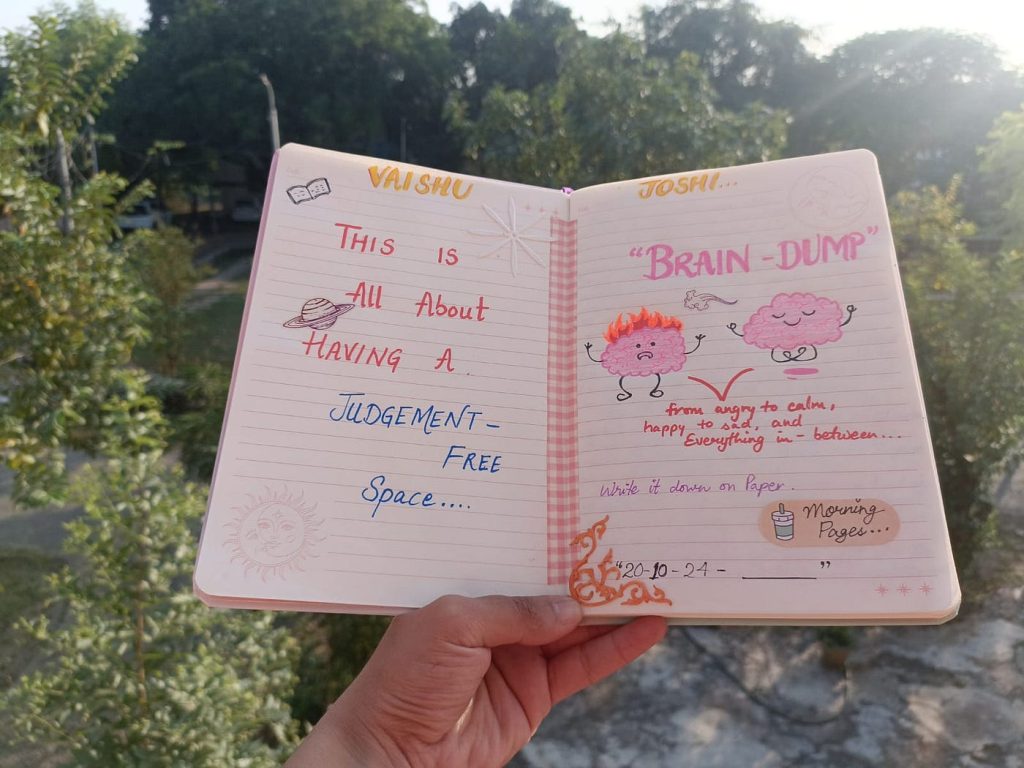 VAISHU
THIS IS
All About
HAVING A.
JUDGEMENT-
FREE
Space....
JOSHI...
"BRAIN-DUMP"
from angry to calm,
happy to sad, and
Everything in-between...
Write it down on Paper.
Morning
Pages...
"20-10-24 - ______"